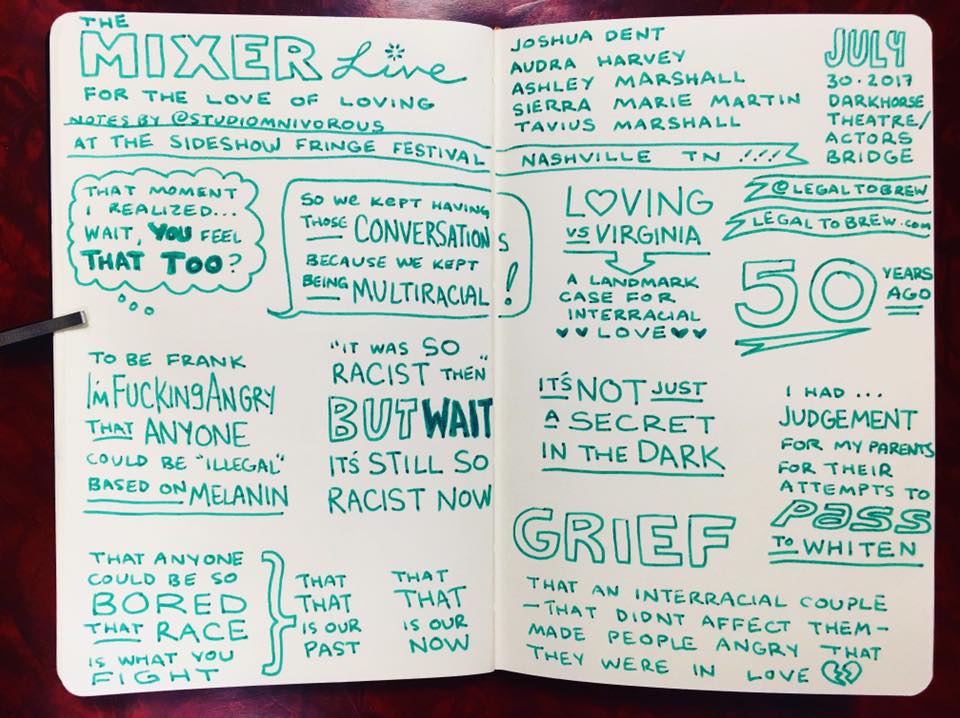 THE
MIXER Live
FOR THE LOVE OF LOVING
NOTES BY @STUDIOMNIVOROUS
AT THE SIDESHOW FRINGE FESTIVAL
NASHVILLE TN !!!!
JOSHUA DENT
AUDRA HARVEY
ASHLEY MARSHALL
SIERRA MARIE MARTIN
TAVIUS MARSHALL
JULY
30·2017
DARKHORSE
THEATRE/
ACTORS
BRIDGE
@LEGALTOBREW
LEGALTOBREW.COM
THAT MOMENT
I REALIZED...
WAIT, YOU FEEL
THAT TOO?
SO WE KEPT HAVING
THOSE CONVERSATIONS
BECAUSE WE KEPT
BEING MULTIRACIAL!
TO BE FRANK
I'M FUCKING ANGRY
THAT ANYONE
COULD BE "ILLEGAL"
BASED ON MELANIN
"IT WAS SO
RACIST THEN"
BUT WAIT
IT'S STILL SO
RACIST NOW
THAT ANYONE
COULD BE SO
BORED
THAT RACE
IS WHAT YOU
FIGHT
THAT
THAT
IS OUR
PAST
THAT
THAT
IS OUR
NOW
LOVING
VS VIRGINIA
A LANDMARK
CASE FOR
INTERRACIAL
♥♥LOVE♥♥
50 YEARS
AGO
IT'S NOT JUST
A SECRET
IN THE DARK
I HAD...
JUDGEMENT
FOR MY PARENTS
FOR THEIR
ATTEMPTS TO
PASS
TO WHITEN
GRIEF
THAT AN INTERRACIAL COUPLE
—THAT DIDNT AFFECT THEM—
MADE PEOPLE ANGRY THAT
THEY WERE IN LOVE